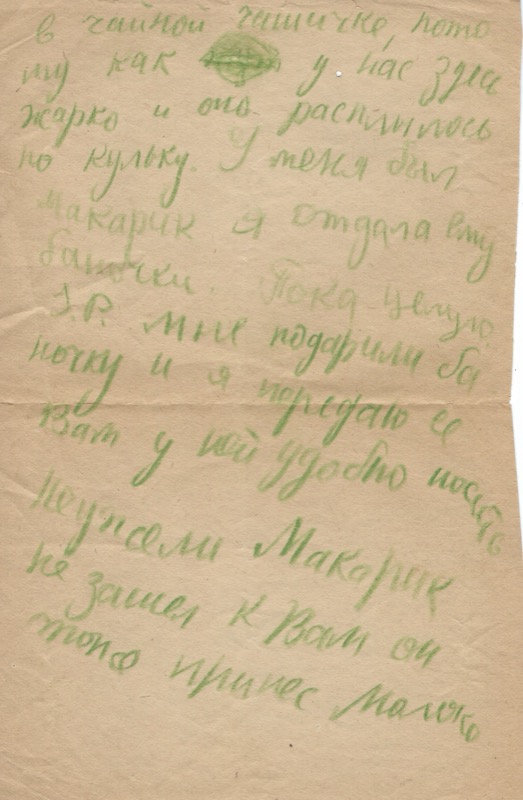 в чайной чашичке, пото
му как у нас здесь
жарко и оно расплылось
по кульку. У меня был
Макарик я отдала ему
баночки. Пока целую.
J.P. мне подарили ба
ночку и я передаю ее
Вам у ней удобно носить
Неужели Макарик
не зашел к Вам он
тоже принес малоко